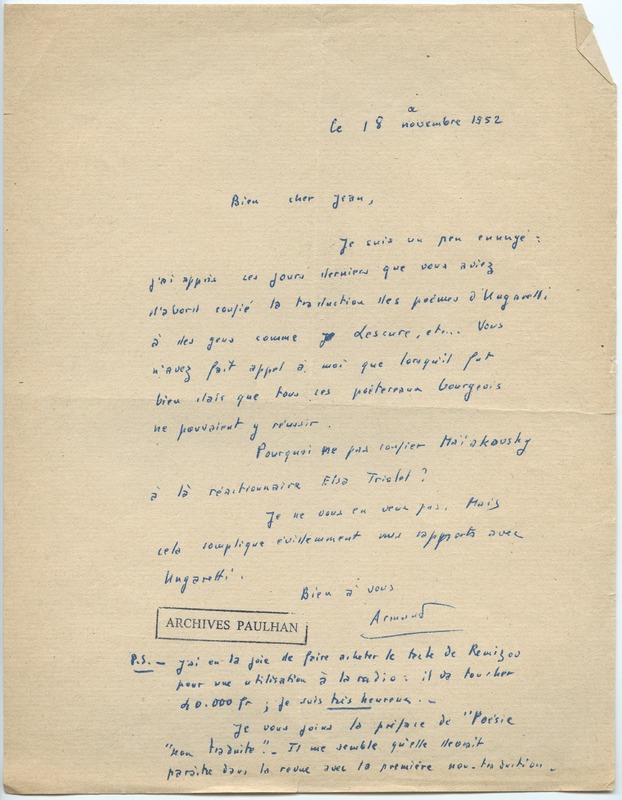 le 18 novembre 1952
Bien cher Jean,
Je suis un peu ennuyé :
j'ai appris ces jours derniers que vous aviez
d'abord confié la traduction des poèmes d'Ungaretti
à des gens comme Lescure, etc... Vous
n'avez fait appel à moi que lorsqu'il fut
bien clair que tous ces poètereaux bourgeois
ne pouvaient y réussir.
Pourquoi ne pas confier Maïakovsky
à la réactionnaire Elsa Triolet ?
Je ne vous en veux pas. Mais
cela complique évidemment mes rapports avec
Ungaretti.
Bien à vous
Armand
ARCHIVES PAULHAN
P.S. — J'ai eu la joie de faire acheter le texte de Remizov
pour une utilisation à la radio : il va toucher
0.000 fr ; je suis très heureux. —
Je vous joins la préface de "Poésie
"non traduite". — Il me semble qu'elle devrait
paraître dans la revue avec la première non-traduction. —